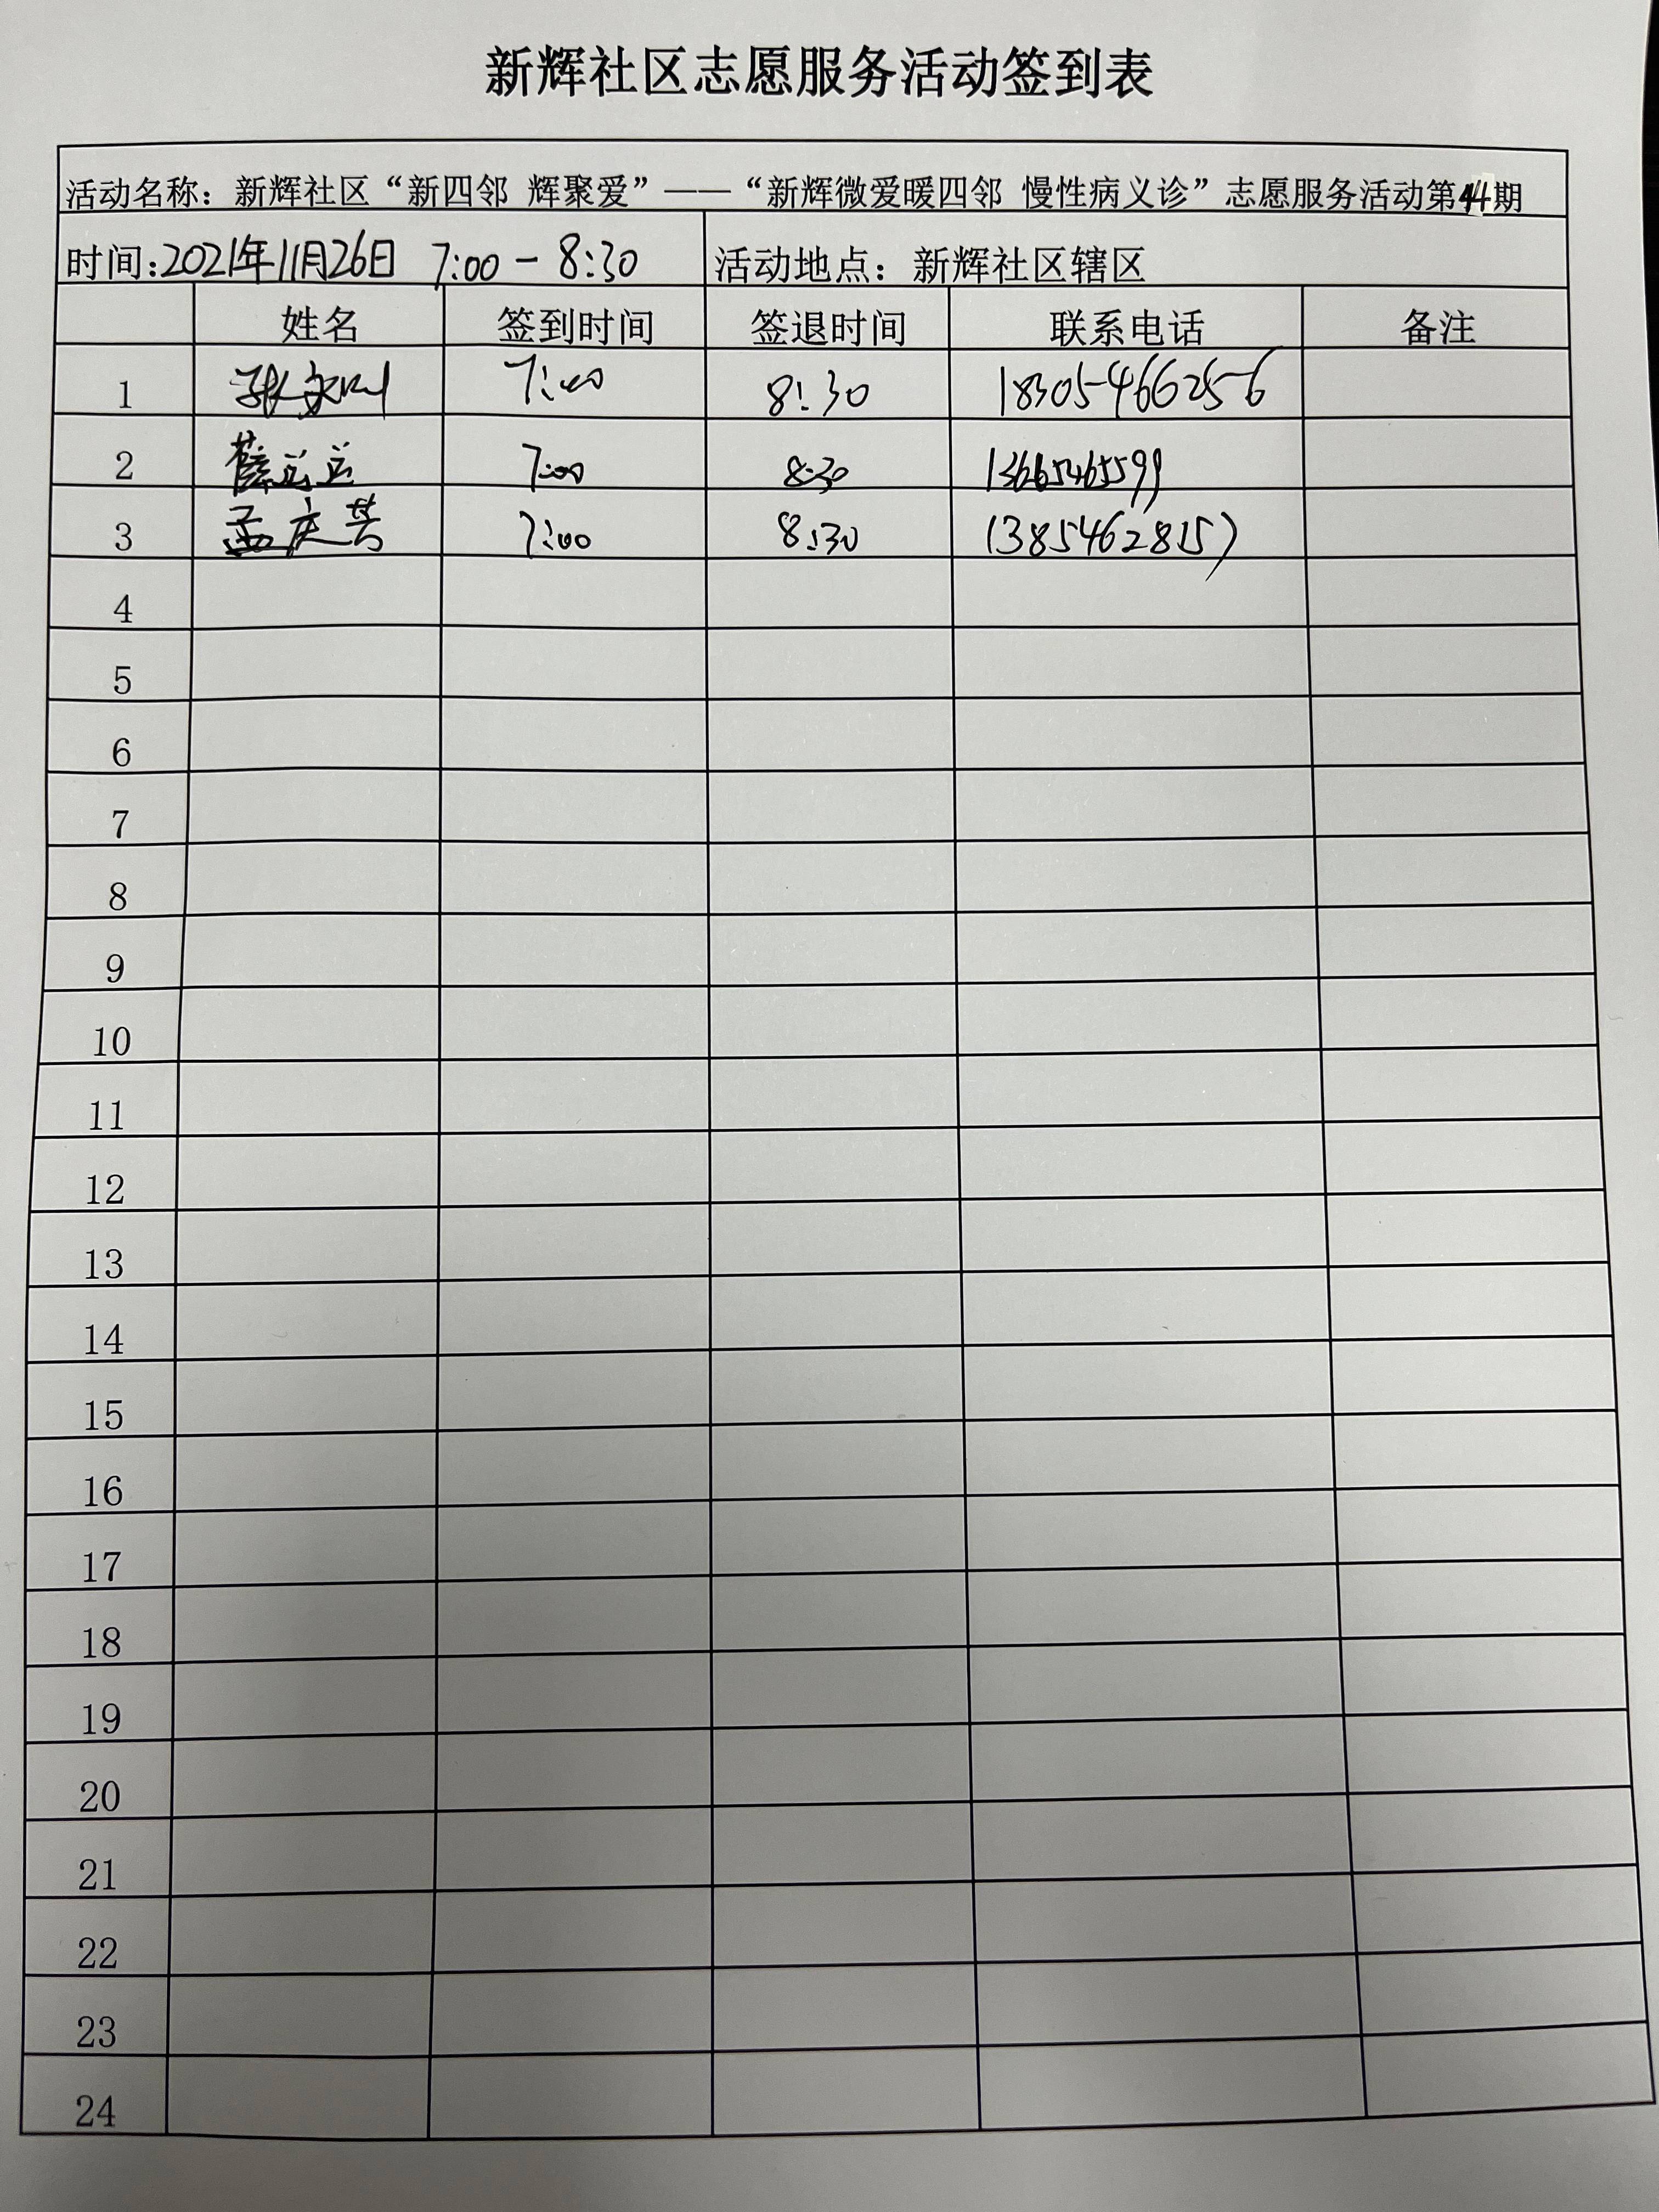 新辉社区志愿服务活动签到表
活动名称：新辉社区“新四邻 辉聚爱”——“新辉微爱暖四邻 慢性病义诊”志愿服务活动第44期
时间:2021年11月26日 7:00-8:30 活动地点：新辉社区辖区
姓名 签到时间 签退时间 联系电话 备注
1 张文 7:00 8:30 18305466256
2 薛运运 7:00 8:30 13665465599
3 孟庆芸 7:00 8:30 13854628157
4
5
6
7
8
9
10
11
12
13
14
15
16
17
18
19
20
21
22
23
24